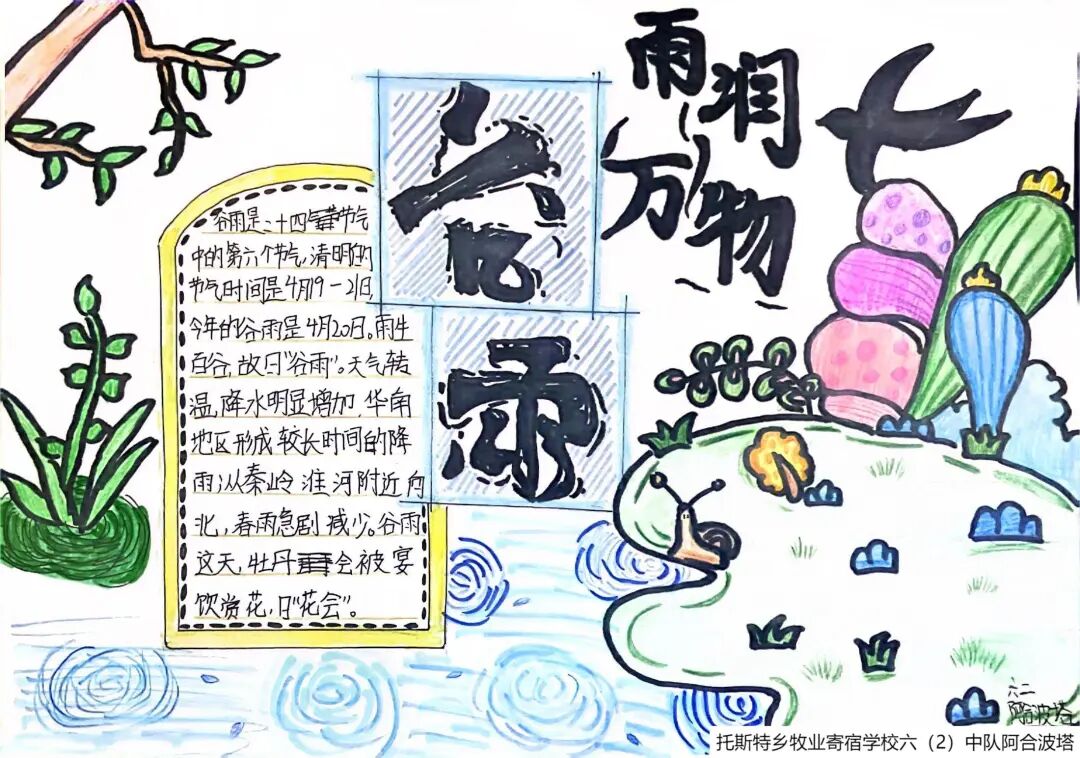 雨润
万物
谷
雨
谷雨是二十四节气
中的第六个节气,清明的
节气时间是4月19-21日,
今年的谷雨是4月20日。雨生
百谷,故曰"谷雨"。天气转
温,降水明显增加,华南
地区形成较长时间的降
雨;从秦岭淮河附近向
北,春雨急剧减少。谷雨
这天,牡丹会被宴
饮赏花,曰"花会"。
六二
阿合波塔
托斯特乡牧业寄宿学校六(2)中队阿合波塔